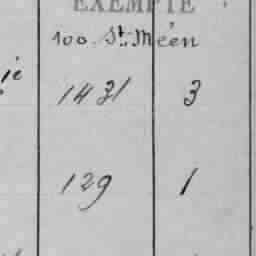 EXEMPTE
100. St. Méen
1431 3
129 1